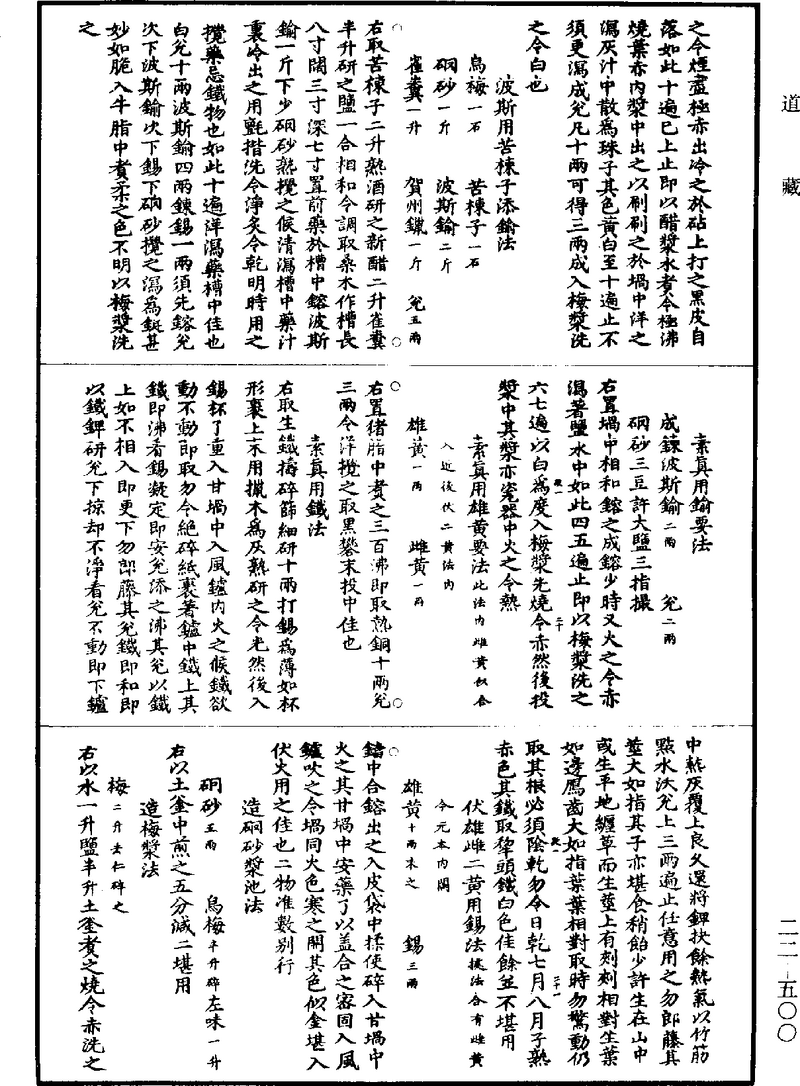 道藏
之令煙盡極赤出冷之於砧上打之黑皮自
落如此十遍已上止即以醋漿水煑令極沸
燒葉赤内漿中出之以刷刷之於堝中洋之
瀉灰汁中散為珠子其色黄白至十遍止不
須更瀉成兊凡十兩可得三兩成入梅漿洗
之令白也
波斯用苦楝子添鍮法
烏梅一石 苦楝子一石
硇砂一斤 波斯鍮二斤
雀糞一升 賀州鑞一斤 兊五兩
右取苦楝子二升熟酒研之新醋二升雀糞
半升研之鹽一合相和令調取桑木作槽長
八寸闊三寸深七寸置前藥於槽中鎔波斯
鍮一斤下少硇砂熟攪之候清瀉槽中藥汁
裏冷出之用氈揩洗令淨炙令乾明時用之
攪藥忌鐵物也如此十遍洋瀉藥槽中佳也
白兊十兩波斯鍮四兩鍊錫一兩須先鎔兊
次下波斯鍮次下錫下硇砂攪之瀉為鋌甚
妙如脆入牛脂中煑柔之色不明以梅漿洗
之
素真用鍮要法
成鍊波斯鍮二兩 兊二兩
硇砂三豆許大鹽三指撮
右置堝中相和鎔之成鎔少時又火之令赤
瀉著鹽水中如此四五遍止即以梅漿洗之
六七遍以白為度入梅漿先燒令赤然後投
漿中其漿亦瓷器中火之令熱
素真用雄黄要法此法内雌黄似合
入近後伏二黄法内
雄黄一兩 雌黄一兩
右置猪脂中煑之三百沸即取熟銅十兩兊
三兩令洋攪之取黑礬末投中佳也
素真用鐵法
右取生鐵擣碎篩細研十兩打錫為薄如杯
形裹上末用撒木為灰熟研之令光然後入
錫杯了重入甘堝中入風鑪内火之候鐵欲
動不動即取勿令絶碎紙裹著鑪中鐵上其
鐵即沸看錫凝定即安兊添之沸其兊以鐵
上如不相入即更下勿郎藤其兊鐵即和即
以鐵錍研兊下掠却不淨看兊不動即下鑪
中熱灰覆上良久還將錍抉餘熱氣以竹筋
點水沃兊上三兩遍止任意用之勿郎藤其
莖大如指其子亦堪食稍飴少許生在山中
或生平地纏草而生莖上有刻刻相對生葉
如邊鴈齒大如指葉葉相對取時勿驚動仍
取其根必須陰乾勿令日乾七月八月子熟
赤色其鐵取犂頭鐵白色佳餘並不堪用
伏雄雌二黄用錫法據法合有雌黄
今元本内闕
雄黄十兩末之 錫三兩
鐺中合鎔出之入皮袋中揉使碎入甘堝中
火之其甘堝中安藥了以盖合之密固入風
鑪吹之令堝同火色寒之開其色似金堪入
伏火用之佳也二物准數别行
造硇砂漿池法
硇砂五兩 烏梅半升碎左味一升
右以土釜中煎之五分減二堪用
造梅漿法
梅二升去仁碎之
右以水一升鹽半升土釜煑之燒令赤洗之
二二–五〇〇